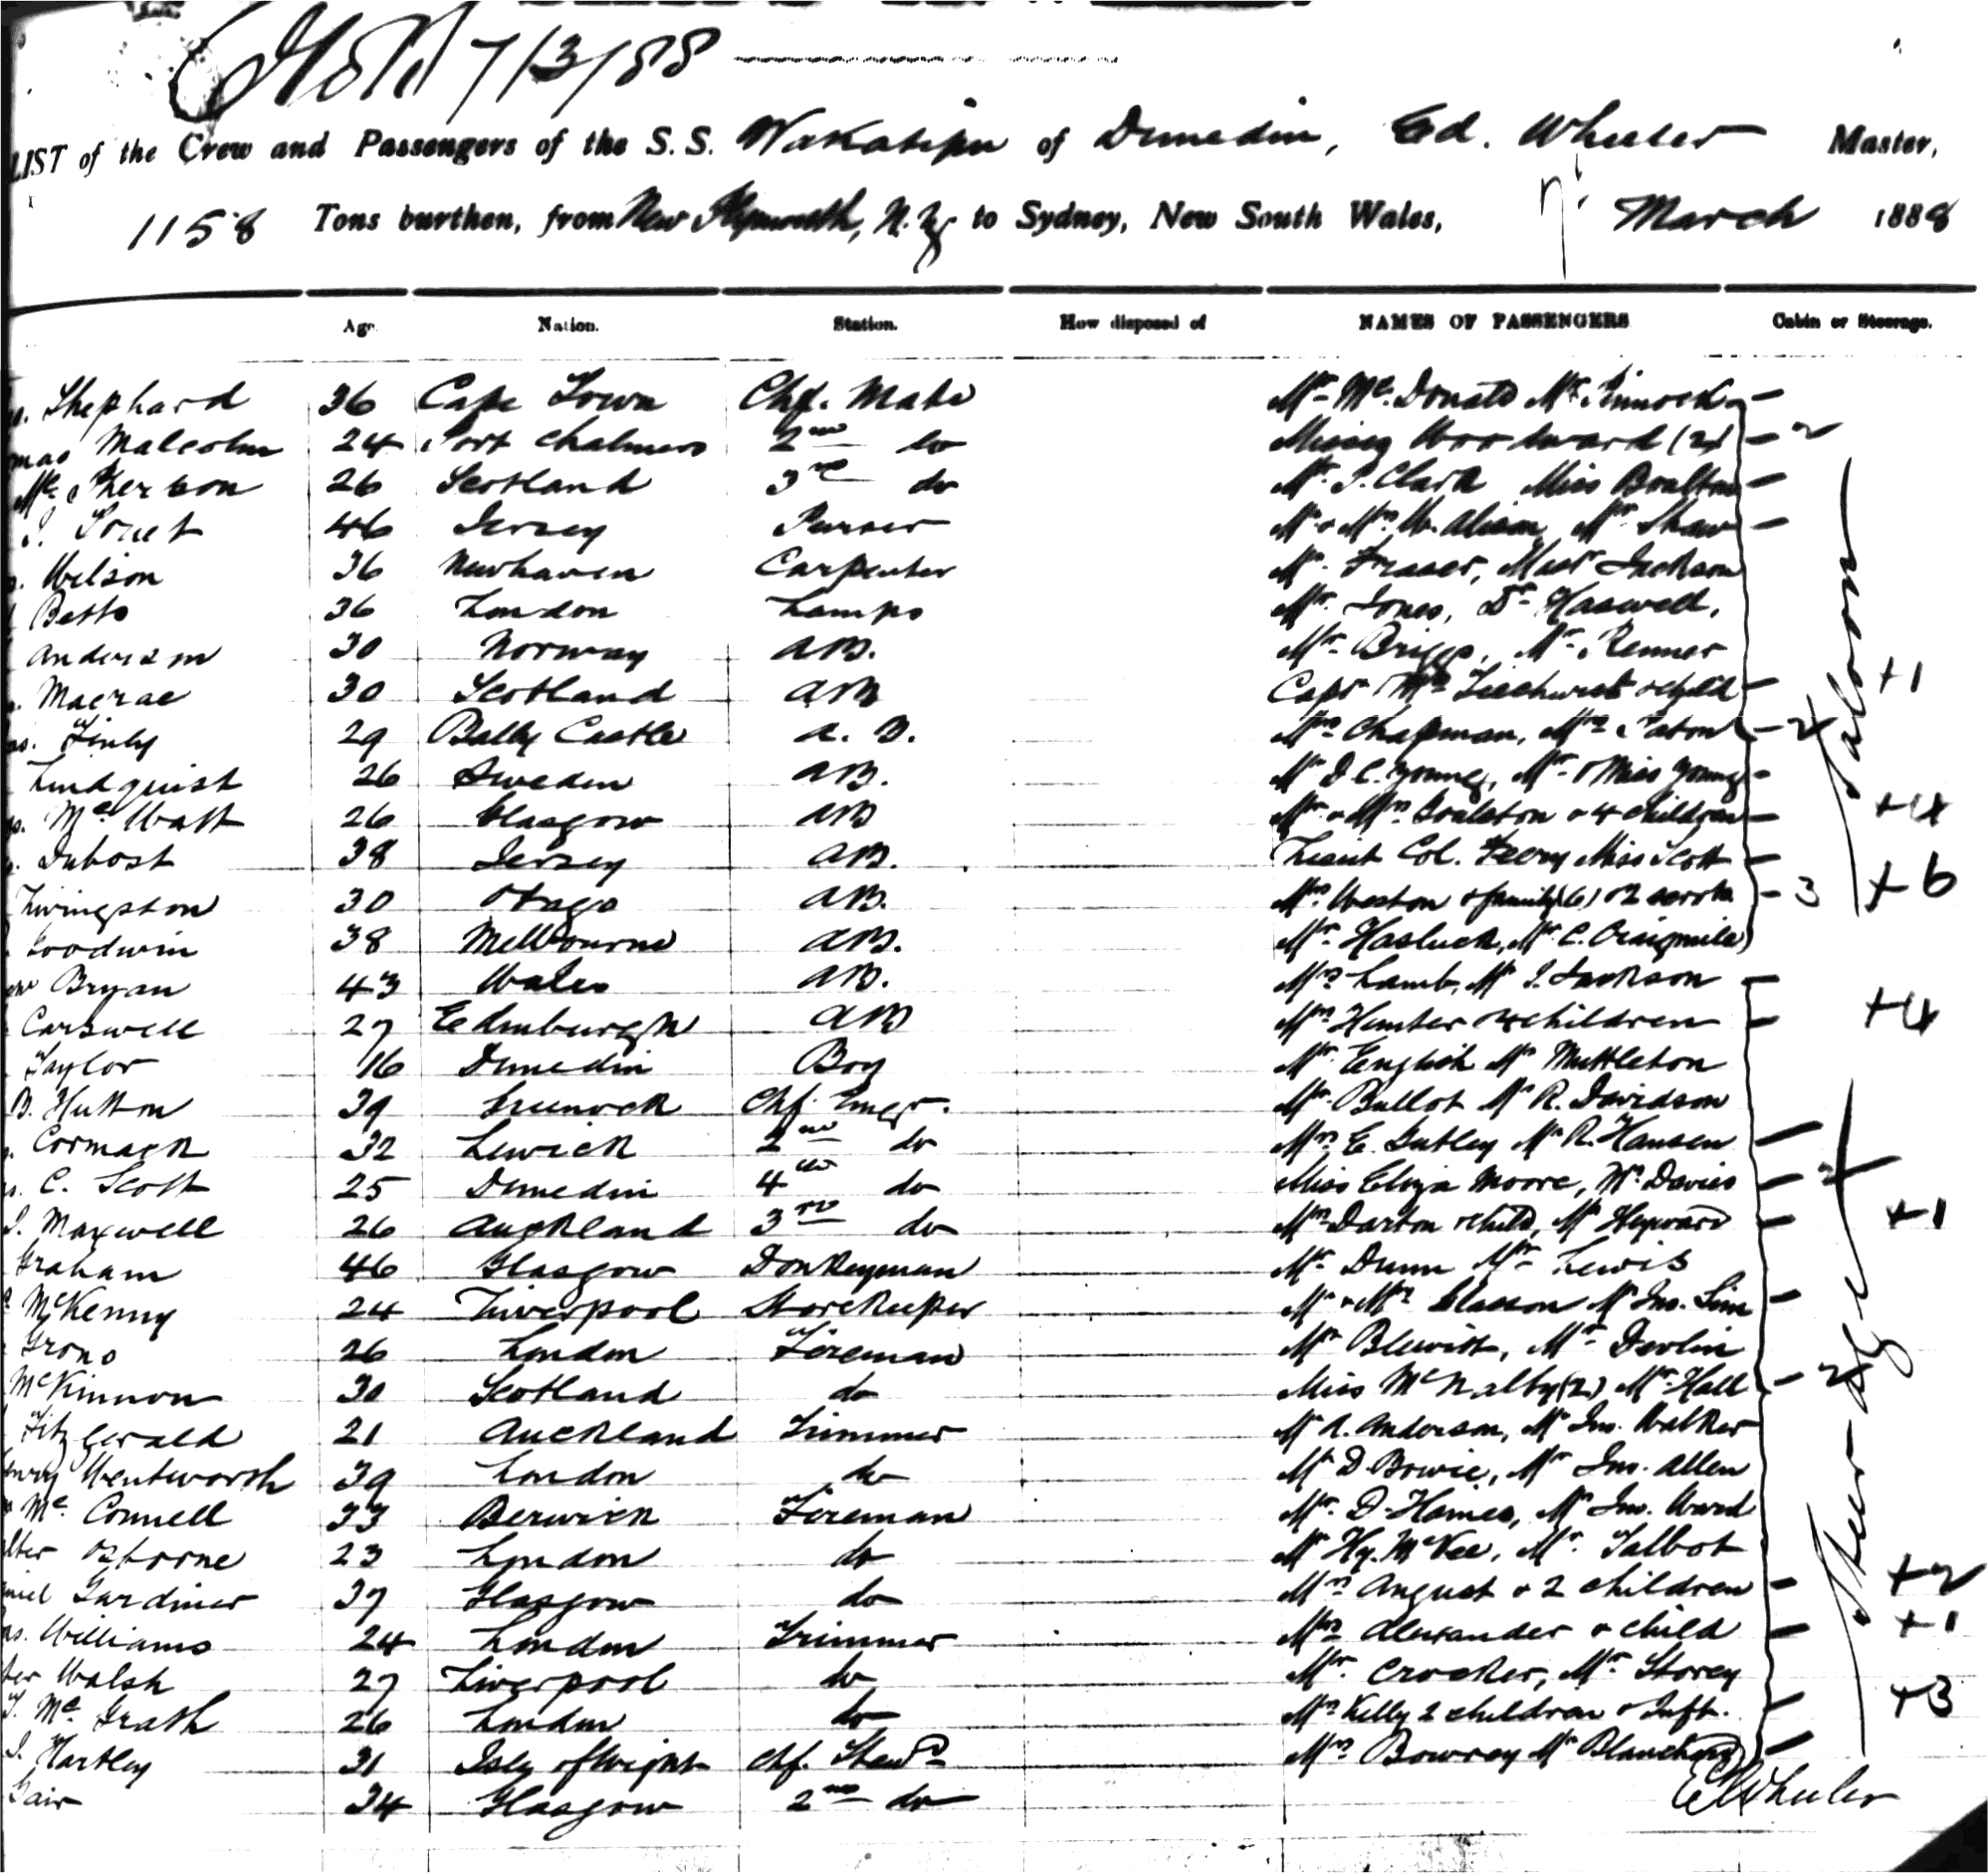 7/3/88
LIST of the Crew and Passengers of the S.S. Wakatipu of Dunedin, Ed. Wheeler Master,
1158 Tons burthen, from New Plymouth, N.Z. to Sydney, New South Wales, March 1888
Age. Nation. Station. How disposed of NAMES OF PASSENGERS Cabin or Steerage.
Shephard 36 Cape Town Chf. Mate Mr. McDonald Mr. Pinnock
Malcolm 24 Port Chalmers 2nd do Misses Woodward (2) - 2
McPherson 26 Scotland 3rd do Mr. J. Clark Miss Boulton
46 Jersey Purser Mr & Mrs W. Alison, Mr Shaw
Wilson 36 Newhaven Carpenter Mr. Fraser, Mast Jackson
Betts 36 London Lamps Mr. Jones, Dr. Haswell,
Anderson 30 Norway AB. Mr. Briggs, Mr. Renner
Macrae 30 Scotland AB Capt Mrs Leechurst & child +1
Finly 29 Bally Castle A. B. Mrs Chapman, Mrs Paton - 2
Lindquist 26 Sweden AB. Mr D. C. Young, Mr. & Miss Young
McWatt 26 Glasgow AB Mr & Mrs & 4 children +4
Dubost 38 Jersey AB. Lieut Col. Miss Scott
Livingston 30 Otago AB. Mrs Weston & family (6) & 2 - 3 +6
Goodwin 38 Melbourne AB. Mr. Hasluck, Mr. C. Craigmile
Bryan 43 Wales AB. Mrs Lamb, Mr J. Jackson
Carswell 27 Edinburgh AB Mrs Hunter & 4 children +4
Taylor 16 Dunedin Boy Mr English Mr Muttleton
B. Hutton 39 Greenock Chf. Engr. Mr. Bullot Mr R. Davidson
Cormack 32 Lewick 2nd do Mrs E. Gutley Mr R. Hansen
C. Scott 25 Dunedin 4th do Miss Eliza Moore, Mr. Davies 2
J. Maxwell 26 Auckland 3rd do Mrs Darton & child, Mr Heyward +1
Graham 46 Glasgow Donkeyman Mr. Dunn Mr. Lewis
McKenny 24 Liverpool Storekeeper Mr & Mrs Classon Mr Jno. Sim
Grono 26 London Fireman Mr Blewitt, Mr Devlin
McKinnon 30 Scotland do Miss McNalby (2) Mr. Hall - 2
Fitzgerald 21 Auckland Trimmer Mr A. Anderson, Mr Jno. Walker
Wentworth 39 London do Mr D. Bowie, Mr Jno. Allen
McConnell 33 Berwick Fireman Mr. D. Haines, Mr Jno. Ward
Osborne 23 London do Mr Hy. McVee, Mr. Talbot
Gardiner 37 Glasgow do Mrs August & 2 children +2
Williams 24 London Trimmer Mrs Alexander & child +1
Walsh 27 Liverpool do Mr. Crocker, Mr. Storey
T. McGrath 26 London do Mrs Kelly 2 children & Inft. +3
J. Hartley 31 Isle of Wight Chf. Stewd Mrs Bowrey Mr Blanchard
Gair 34 Glasgow 2nd do
Saloon
Steerage
E Wheeler